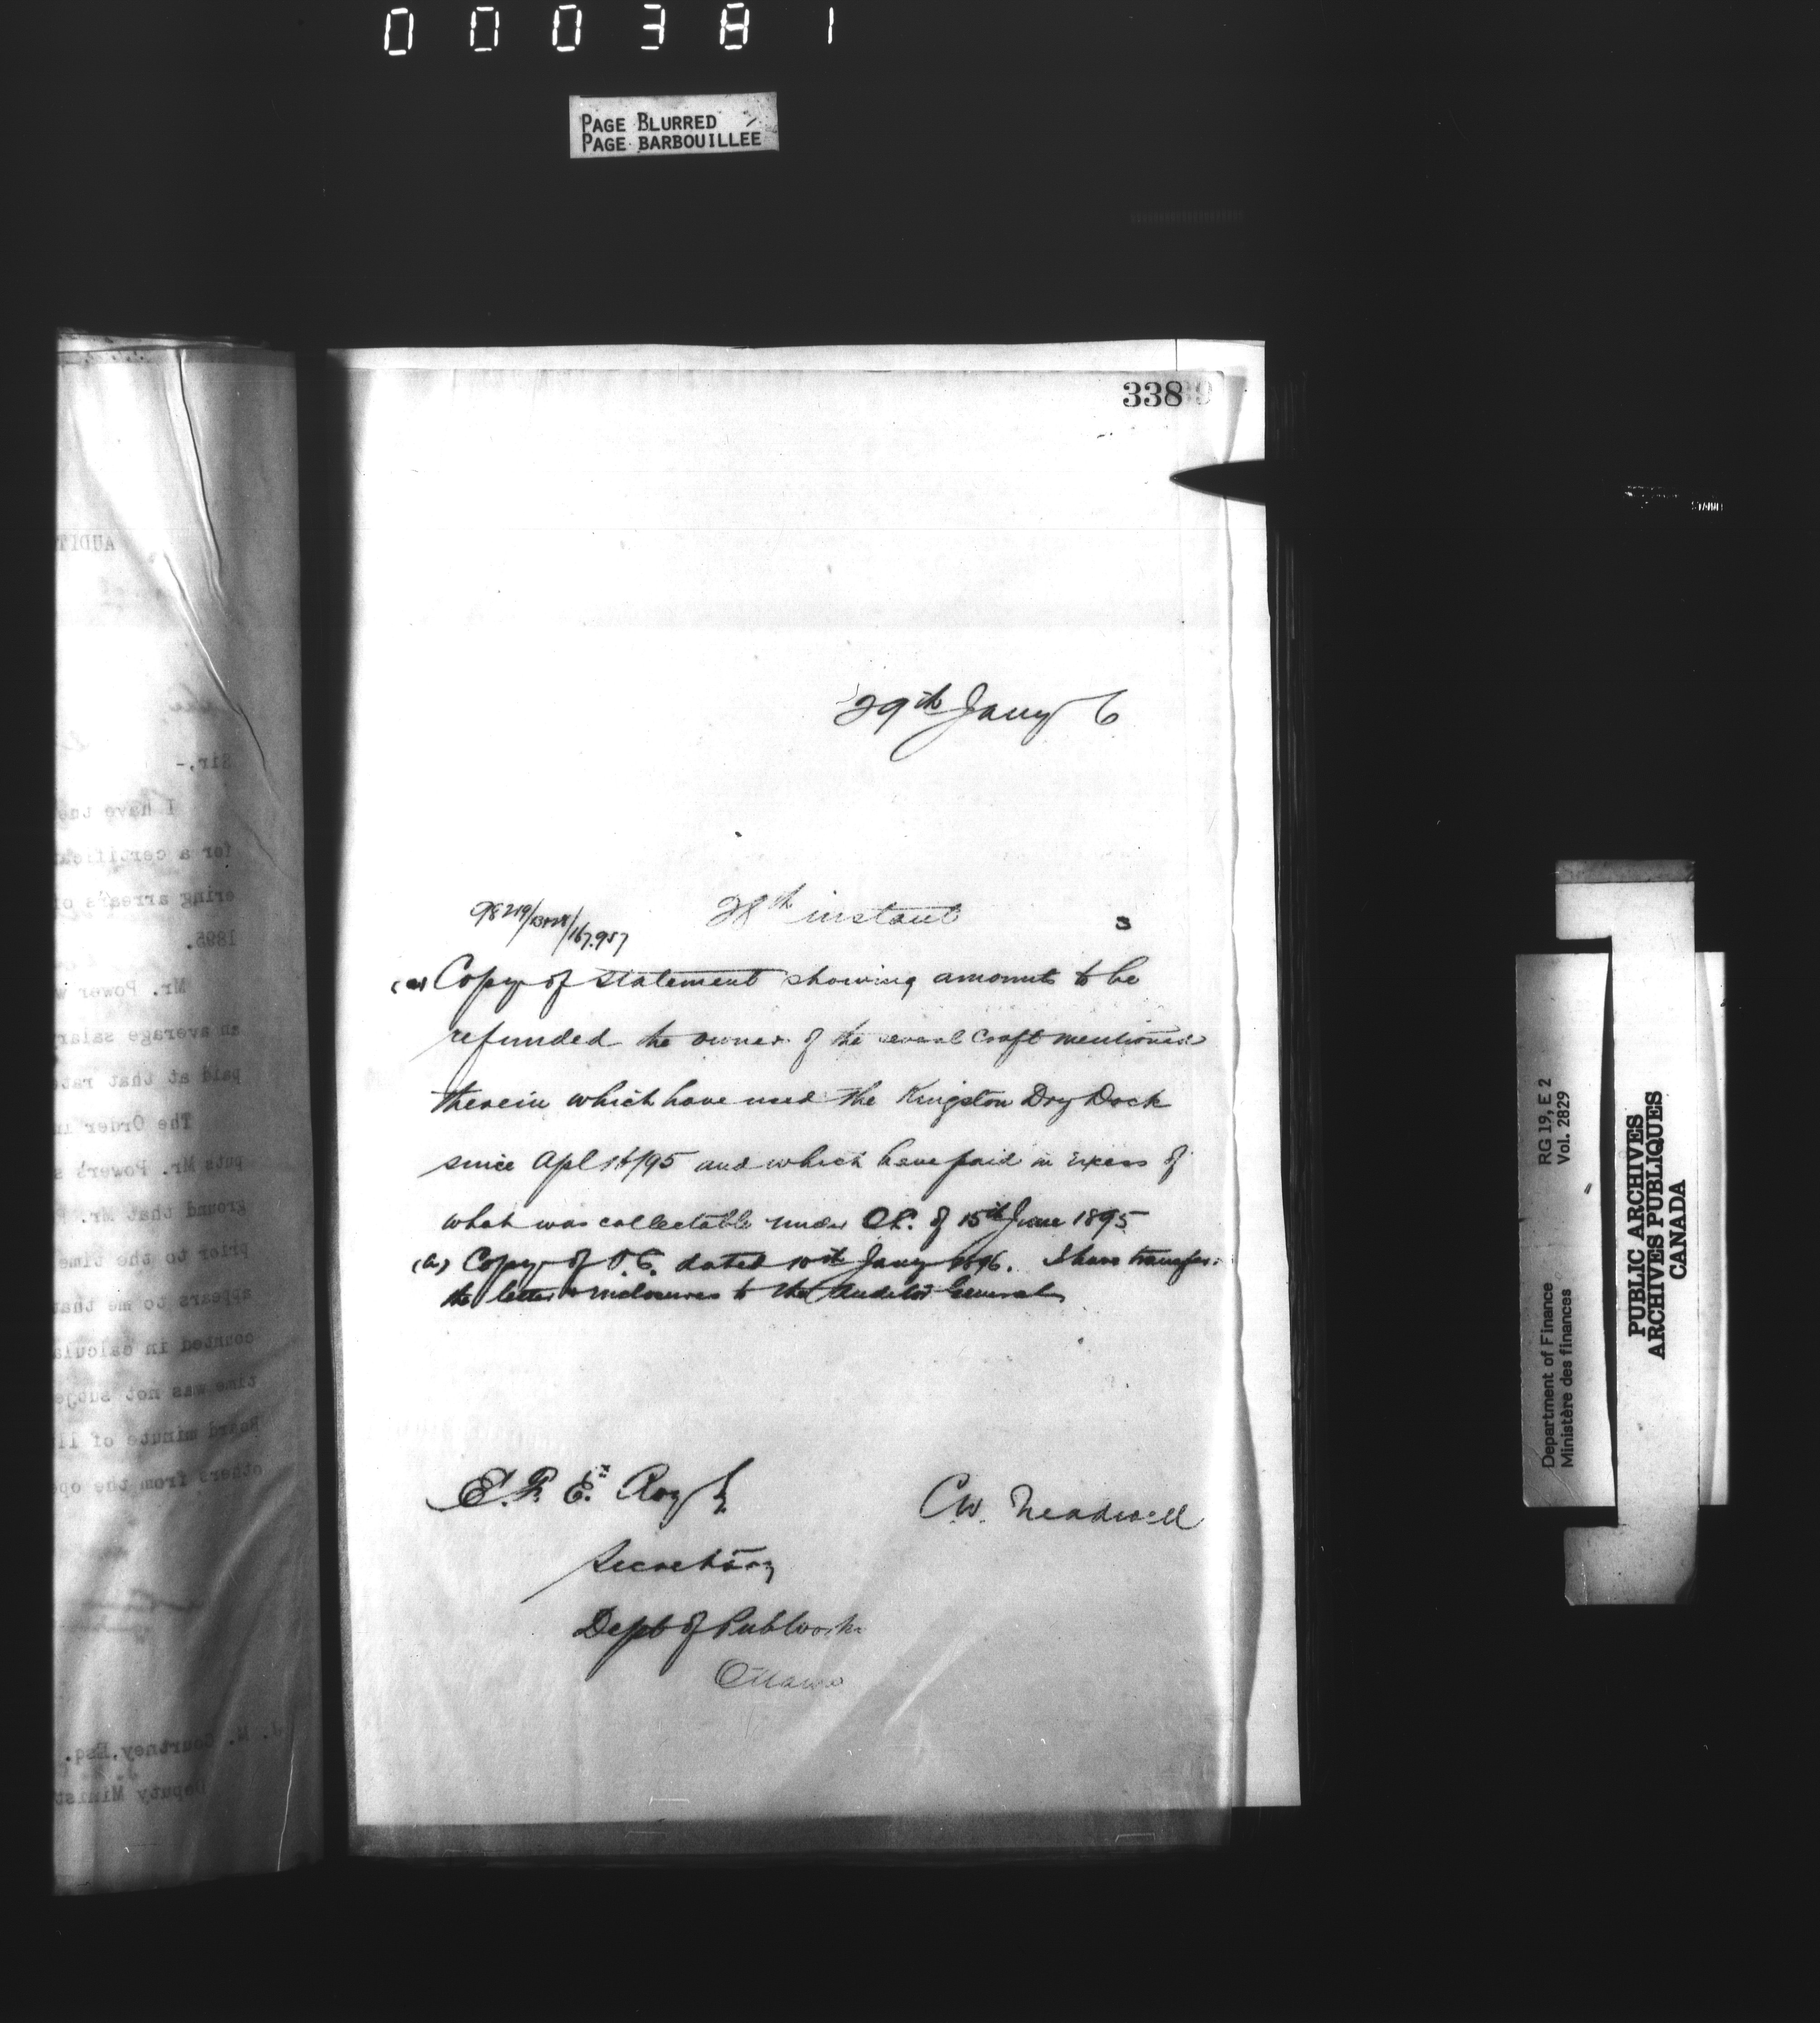 000381
PAGE BLURRED
PAGE BARBOUILLEE
338
29th Jany 6
98219/ /167.957
28th instant
3
(a) Copy of statement showing amounts to be
refunded the owner of the several craft mentioned
therein which have used the Kingston Dry Dock
since Apl 1st/95 and which have paid in excess of
what was collectable under O.C. of 15th June 1895
(b) Copy of O.C. dated 10th Jany 1896. I have transfer.
the letter & inclosures to the Auditor General
E. F. E. Roy Esq
Secretary
Dept of Pub Works
Ottawa
C.W. Treadwell
AUDIT
Sir,-
I have the
for a certific
ering arrears o
1895.
Mr. Power w
an average salar
paid at that rat
The Order i
puts Mr. Power's s
ground that Mr.
prior to the time
appears to me that
counted in calcula
time was not subje
Board minute of 11
others from the ope
J. M. Courtney, Esq.
Deputy Minist
RG 19, E 2
Vol. 2829
Department of Finance
Ministère des finances
PUBLIC ARCHIVES
ARCHIVES PUBLIQUES
CANADA